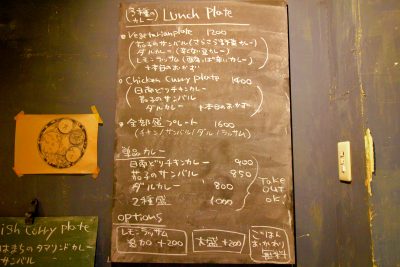 (3種のカレー) Lunch Plate
○ Vegetarian plate 1200
茄子のサンバル(さらさら野菜カレー)
ダルカレー(辛くない豆カレー)
レモンラッサム(酸っぱ辛いカレー)
+本日のおかず
○ Chicken Curry plate 1400
日南どりチキンカレー
茄子のサンバル
ダルカレー +本日のおかず
○ 全部盛プレート 1600
(チキン/サンバル/ダル/ラッサム)
単品カレー
日南どりチキンカレー 900
茄子のサンバル 850
ダルカレー 800
2種盛 1000
Take out ok!
options
レモンラッサム
追加 +200
大盛 +200
ごはん
おかわり
無料
ish curry plate
はまちのタマリンドカレー
サンバル